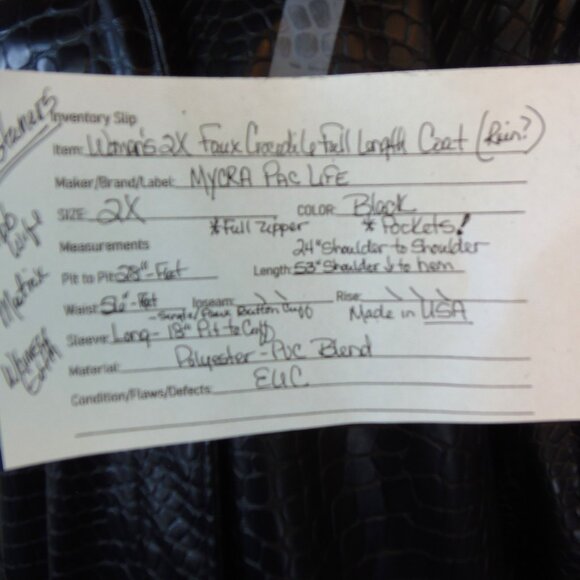 Inventory Slip
Item: Women's 2X Faux Crocodile Full Length Coat (Rain?)
Maker/Brand/Label: MYCRA PAC LIFE
SIZE: 2X COLOR: Black
*Full Zipper *Pockets!
Measurements 24" Shoulder to Shoulder
Pit to Pit: 28"-Flat Length: 53" Shoulder ↓ to hem
Waist: Flat Inseam: \ \ Rise: \ \ \
Button Cuff Made in USA
Sleeve: Long - 18" Pit to Cuff
Material: Polyester-PVC Blend
Condition/Flaws/Defects: EUC
Matrix